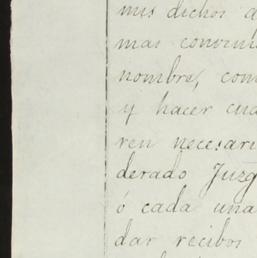 mis dichos d
mas convini
nombre, com
y hacer cua
ren necesari
derado Juzg
ó cada una
dar recibos